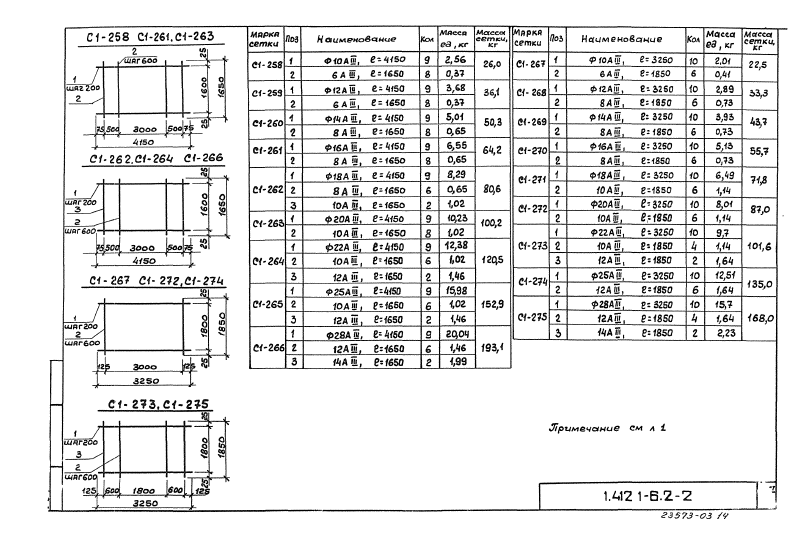 С1-258 С1-261, С1-263
2
ШАГ 600
1
ШАГ 200
2
25
1600
1650
25
75 500 3000 500 75
4150
С1-262, С1-264 С1-266
1
ШАГ 200
3
2
ШАГ 600
25
1600
1650
25
75 500 3000 500 75
4150
С1-267 С1-272, С1-274
1
ШАГ 200
2
ШАГ 600
25
1800
1850
125 3000 125
3250
С1-273, С1-275
1
ШАГ 200
3
2
ШАГ 600
25
1800
1850
125 600 1800 600 125
3250
Марка сетки Поз Наименование Кол Масса ед, кг Масса сетки, кг
С1-258 1 Ф10АIII, ℓ=4150 9 2,56 26,0
2 6АIII, ℓ=1650 8 0,37
С1-259 1 Ф12АIII, ℓ=4150 9 3,68 36,1
2 6АIII, ℓ=1650 8 0,37
С1-260 1 Ф14АIII, ℓ=4150 9 5,01 50,3
2 8АIII, ℓ=1650 8 0,65
С1-261 1 Ф16АIII, ℓ=4150 9 6,55 64,2
2 8АIII, ℓ=1650 8 0,65
С1-262 1 Ф18АIII, ℓ=4150 9 8,29 80,6
2 8АIII, ℓ=1650 6 0,65
3 10АIII, ℓ=1650 2 1,02
С1-263 1 Ф20АIII, ℓ=4150 9 10,23 100,2
2 10АIII, ℓ=1650 8 1,02
С1-264 1 Ф22АIII, ℓ=4150 9 12,38 120,5
2 10АIII, ℓ=1650 6 1,02
3 12АIII, ℓ=1650 2 1,46
С1-265 1 Ф25АIII, ℓ=4150 9 15,98 152,9
2 10АIII, ℓ=1650 6 1,02
3 12АIII, ℓ=1650 2 1,46
С1-266 1 Ф28АIII, ℓ=4150 9 20,04 193,1
2 12АIII, ℓ=1650 6 1,46
3 14АIII, ℓ=1650 2 1,99
Марка сетки Поз Наименование Кол Масса ед, кг Масса сетки, кг
С1-267 1 Ф10АIII, ℓ=3250 10 2,01 22,5
2 6АIII, ℓ=1850 6 0,41
С1-268 1 Ф12АIII, ℓ=3250 10 2,89 33,3
2 8АIII, ℓ=1850 6 0,73
С1-269 1 Ф14АIII, ℓ=3250 10 3,93 43,7
2 8АIII, ℓ=1850 6 0,73
С1-270 1 Ф16АIII, ℓ=3250 10 5,13 55,7
2 8АIII, ℓ=1850 6 0,73
С1-271 1 Ф18АIII, ℓ=3250 10 6,49 71,8
2 10АIII, ℓ=1850 6 1,14
С1-272 1 Ф20АIII, ℓ=3250 10 8,01 87,0
2 10АIII, ℓ=1850 6 1,14
С1-273 1 Ф22АIII, ℓ=3250 10 9,7 101,6
2 10АIII, ℓ=1850 4 1,14
3 12АIII, ℓ=1850 2 1,64
С1-274 1 Ф25АIII, ℓ=3250 10 12,51 135,0
2 12АIII, ℓ=1850 6 1,64
С1-275 1 Ф28АIII, ℓ=3250 10 15,7 168,0
2 12АIII, ℓ=1850 4 1,64
3 14АIII, ℓ=1850 2 2,23
Примечание см л 1
1.412 1-6.2-2
23573-03 14